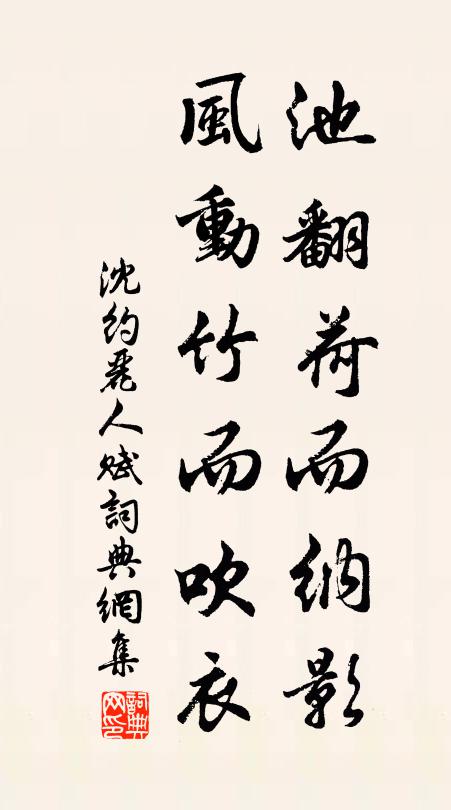 池翻荷而納影
風動竹而吹衣
沈約麗人賦詞典網集
詞典網印